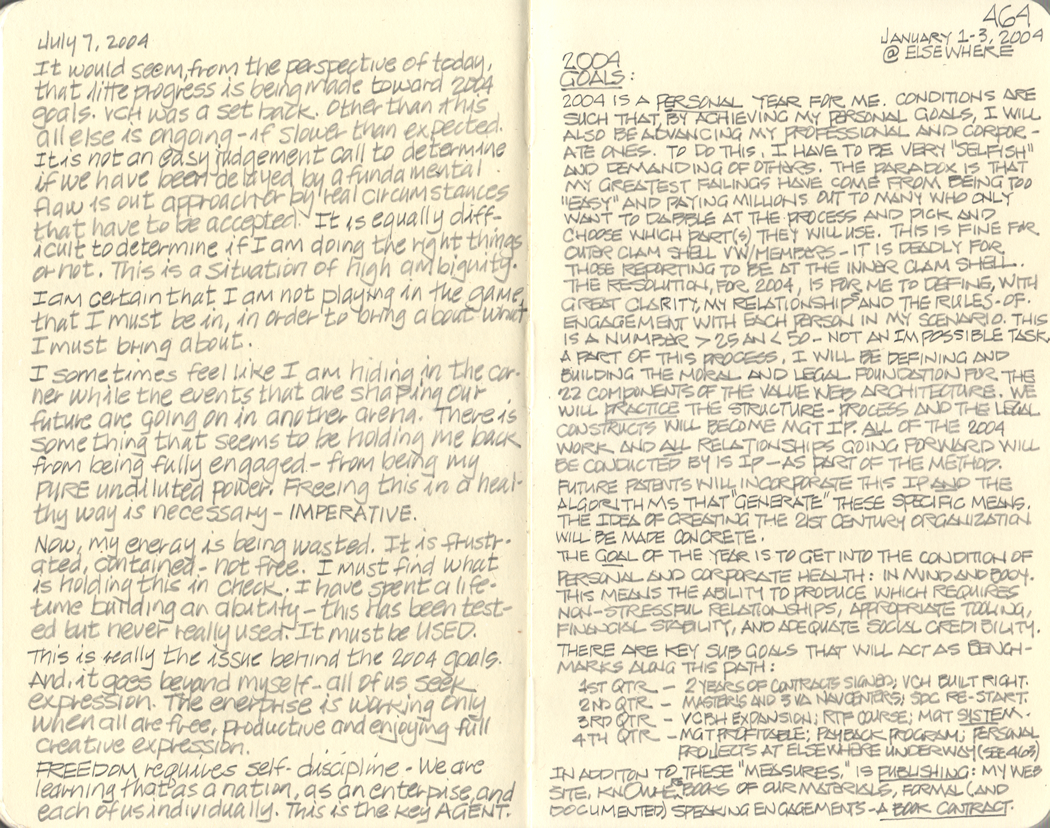 July 7, 2004
It would seem, from the perspective of today,
that litte progress is being made toward 2004
goals. VCH was a set back. Other than this
all else is ongoing - if slower than expected.
It is not an easy judgement call to determine
if we have been delayed by a fundamental
flaw is out approach or by real circumstances
that have to be accepted. It is equally diff-
icult to determine if I am doing the right things
or not. This is a situation of high ambiguity.
I am certain that I am not playing in the game,
that I must be in, in order to bring about what
I must bring about.
I sometimes feel like I am hiding in the cor-
ner while the events that are shaping our
future are going on in another arena. There is
something that seems to be holding me back
from being fully engaged - from being my
PURE undiluted power. Freeing this in a heal-
thy way is necessary - IMPERATIVE.
Now, my energy is being wasted. It is frustr-
ated, contained - not free. I must find what
is holding this in check. I have spent a life-
time building an abutity - this has been test-
ed but never really used. It must be USED.
This is really the issue behind the 2004 goals.
And, it goes beyond myself - all of us seek
expression. The enerprise is working only
when all are free, productive and enjoying full
creative expression.
FREEDOM requires self-discipline - We are
learning that as a nation, as an enterprise, and
each of us individually. This is the key AGENT.
464
JANUARY 1-3, 2004
@ ELSEWHERE
2004
GOALS:
2004 IS A PERSONAL YEAR FOR ME. CONDITIONS ARE
SUCH THAT, BY ACHIEVING MY PERSONAL GOALS, I WILL
ALSO BE ADVANCING MY PROFESSIONAL AND CORPOR-
ATE ONES. TO DO THIS, I HAVE TO BE VERY "SELFISH"
AND DEMANDING OF OTHERS. THE PARADOX IS THAT
MY GREATEST FAILINGS HAVE COME FROM BEING TOO
"EASY" AND PAYING MILLIONS OUT TO MANY WHO ONLY
WANT TO DABBLE AT THE PROCESS AND PICK AND
CHOOSE WHICH PART(S) THEY WILL USE. THIS IS FINE FOR
OUTER CLAM SHELL VW/MEMBERS - IT IS DEADLY FOR
THOSE REPORTING TO BE AT THE INNER CLAM SHELL.
THE RESOLUTION, FOR 2004, IS FOR ME TO DEFINE, WITH
GREAT CLARITY, MY RELATIONSHIP AND THE RULES-OF-
ENGAGEMENT WITH EACH PERSON IN MY SCENARIO. THIS
IS A NUMBER > 25 AN < 50 - NOT AN IMPOSSIBLE TASK.
A PART OF THIS PROCESS, I WILL BE DEFINING AND
BUILDING THE MORAL AND LEGAL FOUNDATION FOR THE
22 COMPONENTS OF THE VALUE WEB ARCHITECTURE. WE
WILL PRACTICE THE STRUCTURE - PROCESS AND THE LEGAL
CONSTRUCTS WILL BECOME MGT IP. ALL OF THE 2004
WORK AND ALL RELATIONSHIPS GOING FORWARD WILL
BE CONDUCTED BY IS IP - AS PART OF THE METHOD.
FUTURE PATENTS WILL INCORPORATE THIS IP AND THE
ALGORITHMS THAT "GENERATE" THESE SPECIFIC MEANS.
THE IDEA OF CREATING THE 21ST CENTURY ORGANIZATION
WILL BE MADE CONCRETE.
THE GOAL OF THE YEAR IS TO GET INTO THE CONDITION OF
PERSONAL AND CORPORATE HEALTH: IN MIND AND BODY.
THIS MEANS THE ABILITY TO PRODUCE WHICH REQUIRES
NON-STRESSFUL RELATIONSHIPS, APPROPRIATE TOOLING,
FINANCIAL STABILITY, AND ADEQUATE SOCIAL CREDIBILITY.
THERE ARE KEY SUB GOALS THAT WILL ACT AS BENCH-
MARKS ALONG THIS PATH:
1ST QTR - 2 YEARS OF CONTRACTS SIGNED; VCH BUILT RIGHT.
2ND QTR - MASTERIS AND 3 VA NAVCENTERS; SDC RE-START.
3RD QTR - VCBH EXPANSION; RTF COURSE; MGT SYSTEM.
4TH QTR - MGT PROFITABLE; PAYBACK PROGRAM; PERSONAL
PROJECTS AT ELSEWHERE UNDERWAY (SEE 463)
IN ADDITON TO THESE "MEASURES," IS PUBLISHING: MY WEB
SITE, BOOKS OF OUR MATERIALS, FORMAL (AND
DOCUMENTED) SPEAKING ENGAGEMENTS - A BOOK CONTRACT.